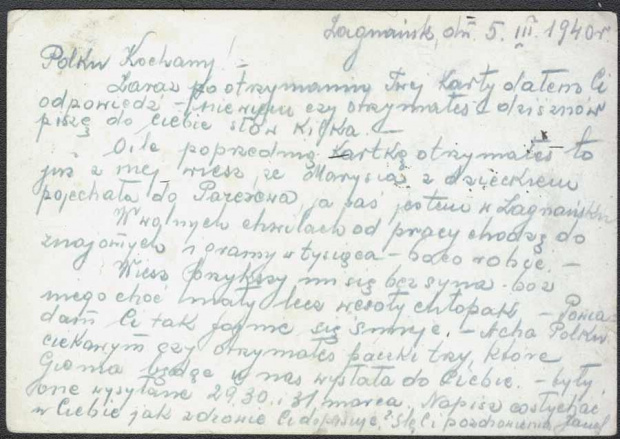 Zagnańsk, dn. 5. III. 1940 r.
Polku Kochany! –
Zaraz po otrzymaniu Twej karty dałem Ci
odpowiedź – nie wiem czy otrzymałeś – dziś znów
piszę do Ciebie słów kilka. –
O ile poprzednią kartkę otrzymałeś to
już z niej wiesz, że Marysia z dzieckiem
pojechała do , ja zaś jestem w Zagnańsku
W wolnych chwilach od pracy chodzę do
znajomych i gramy w tysiąca – bo co robić. –
Wiesz przykrzy mi się bez syna – boż
niego choć mały lecz wesoły chłopak –
Ci tak się śmieje. – Acha Polku
ciekawym czy otrzymałeś paczki trzy, które
u nas wysłała do Ciebie. – były
one wysyłane 29. 30. i 31 marca. Napisz co słychać
u Ciebie jak zdrowie Ci dopisuje? Ślę Ci pozdrowienia